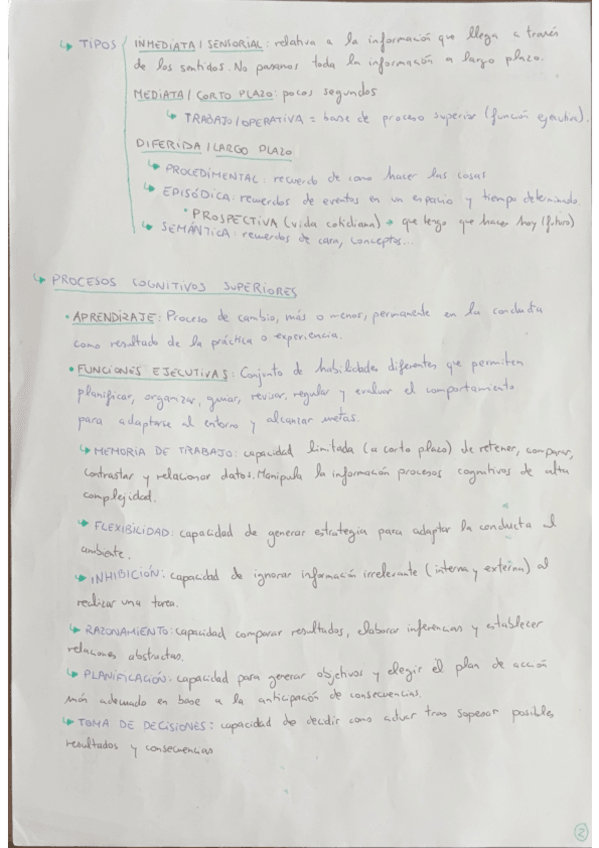 ↳ TIPOS
INMEDIATA / SENSORIAL: relativa a la información que llega a través
de los sentidos. No pasamos toda la información a largo plazo.
MEDIATA / CORTO PLAZO: pocos segundos
↳ TRABAJO/OPERATIVA = base de proceso superior (función ejecutiva).
DIFERIDA / LARGO PLAZO
↳ PROCEDIMENTAL: recuerdo de como hacer las cosas
↳ EPISÓDICA: recuerdos de eventos en un espacio y tiempo determinado.
• PROSPECTIVA (vida cotidiana) → que tengo que hacer hoy (futuro)
↳ SEMÁNTICA: recuerdos de cara, conceptos...
↳ PROCESOS COGNITIVOS SUPERIORES
• APRENDIZAJE: Proceso de cambio, más o menos, permanente en la conducta
como resultado de la práctica o experiencia.
• FUNCIONES EJECUTIVAS: Conjunto de habilidades diferentes que permiten
planificar, organizar, guiar, revisar, regular y evaluar el comportamiento
para adaptarse al entorno y alcanzar metas.
↳ MEMORIA DE TRABAJO: capacidad limitada (a corto plazo) de retener, comparar,
contrastar y relacionar datos. Manipula la información procesos cognitivos de alta
complejidad.
↳ FLEXIBILIDAD: capacidad de generar estrategia para adaptar la conducta al
ambiente.
↳ INHIBICIÓN: capacidad de ignorar información irrelevante (interna y externa) al
realizar una tarea.
↳ RAZONAMIENTO: capacidad comparar resultados, elaborar inferencias y establecer
relaciones abstractas.
↳ PLANIFICACIÓN: capacidad para generar objetivos y elegir el plan de acción
más adecuado en base a la anticipación de consecuencias.
↳ TOMA DE DECISIONES: capacidad de decidir como actuar tras sopesar posibles
resultados y consecuencias
2